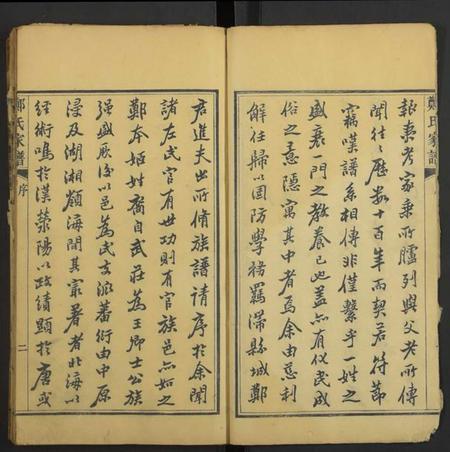 鄭氏家譜
報稟考家乘所臚列與父老所傳
聞往往歷數十百年而契若符節
竊嘆譜系相傳非僅繫乎一姓之
盛衰一門之教養已也蓋亦有化民成
俗之意隱寓其中者焉余由慈利
解任歸以困防學禒羈滯縣城鄭
君進夫出所脩族譜請序於余聞
諸左氏官有世功則有官族邑亦如之
鄭本姬姓裔自武莊為王卿士公族
强盛厥後以邑為氏支派蕃衍由中原
浸及湖湘嶺海間其最著者北海以
經術鳴於漢滎陽以政績顯於唐或
鄭氏家譜
序
二